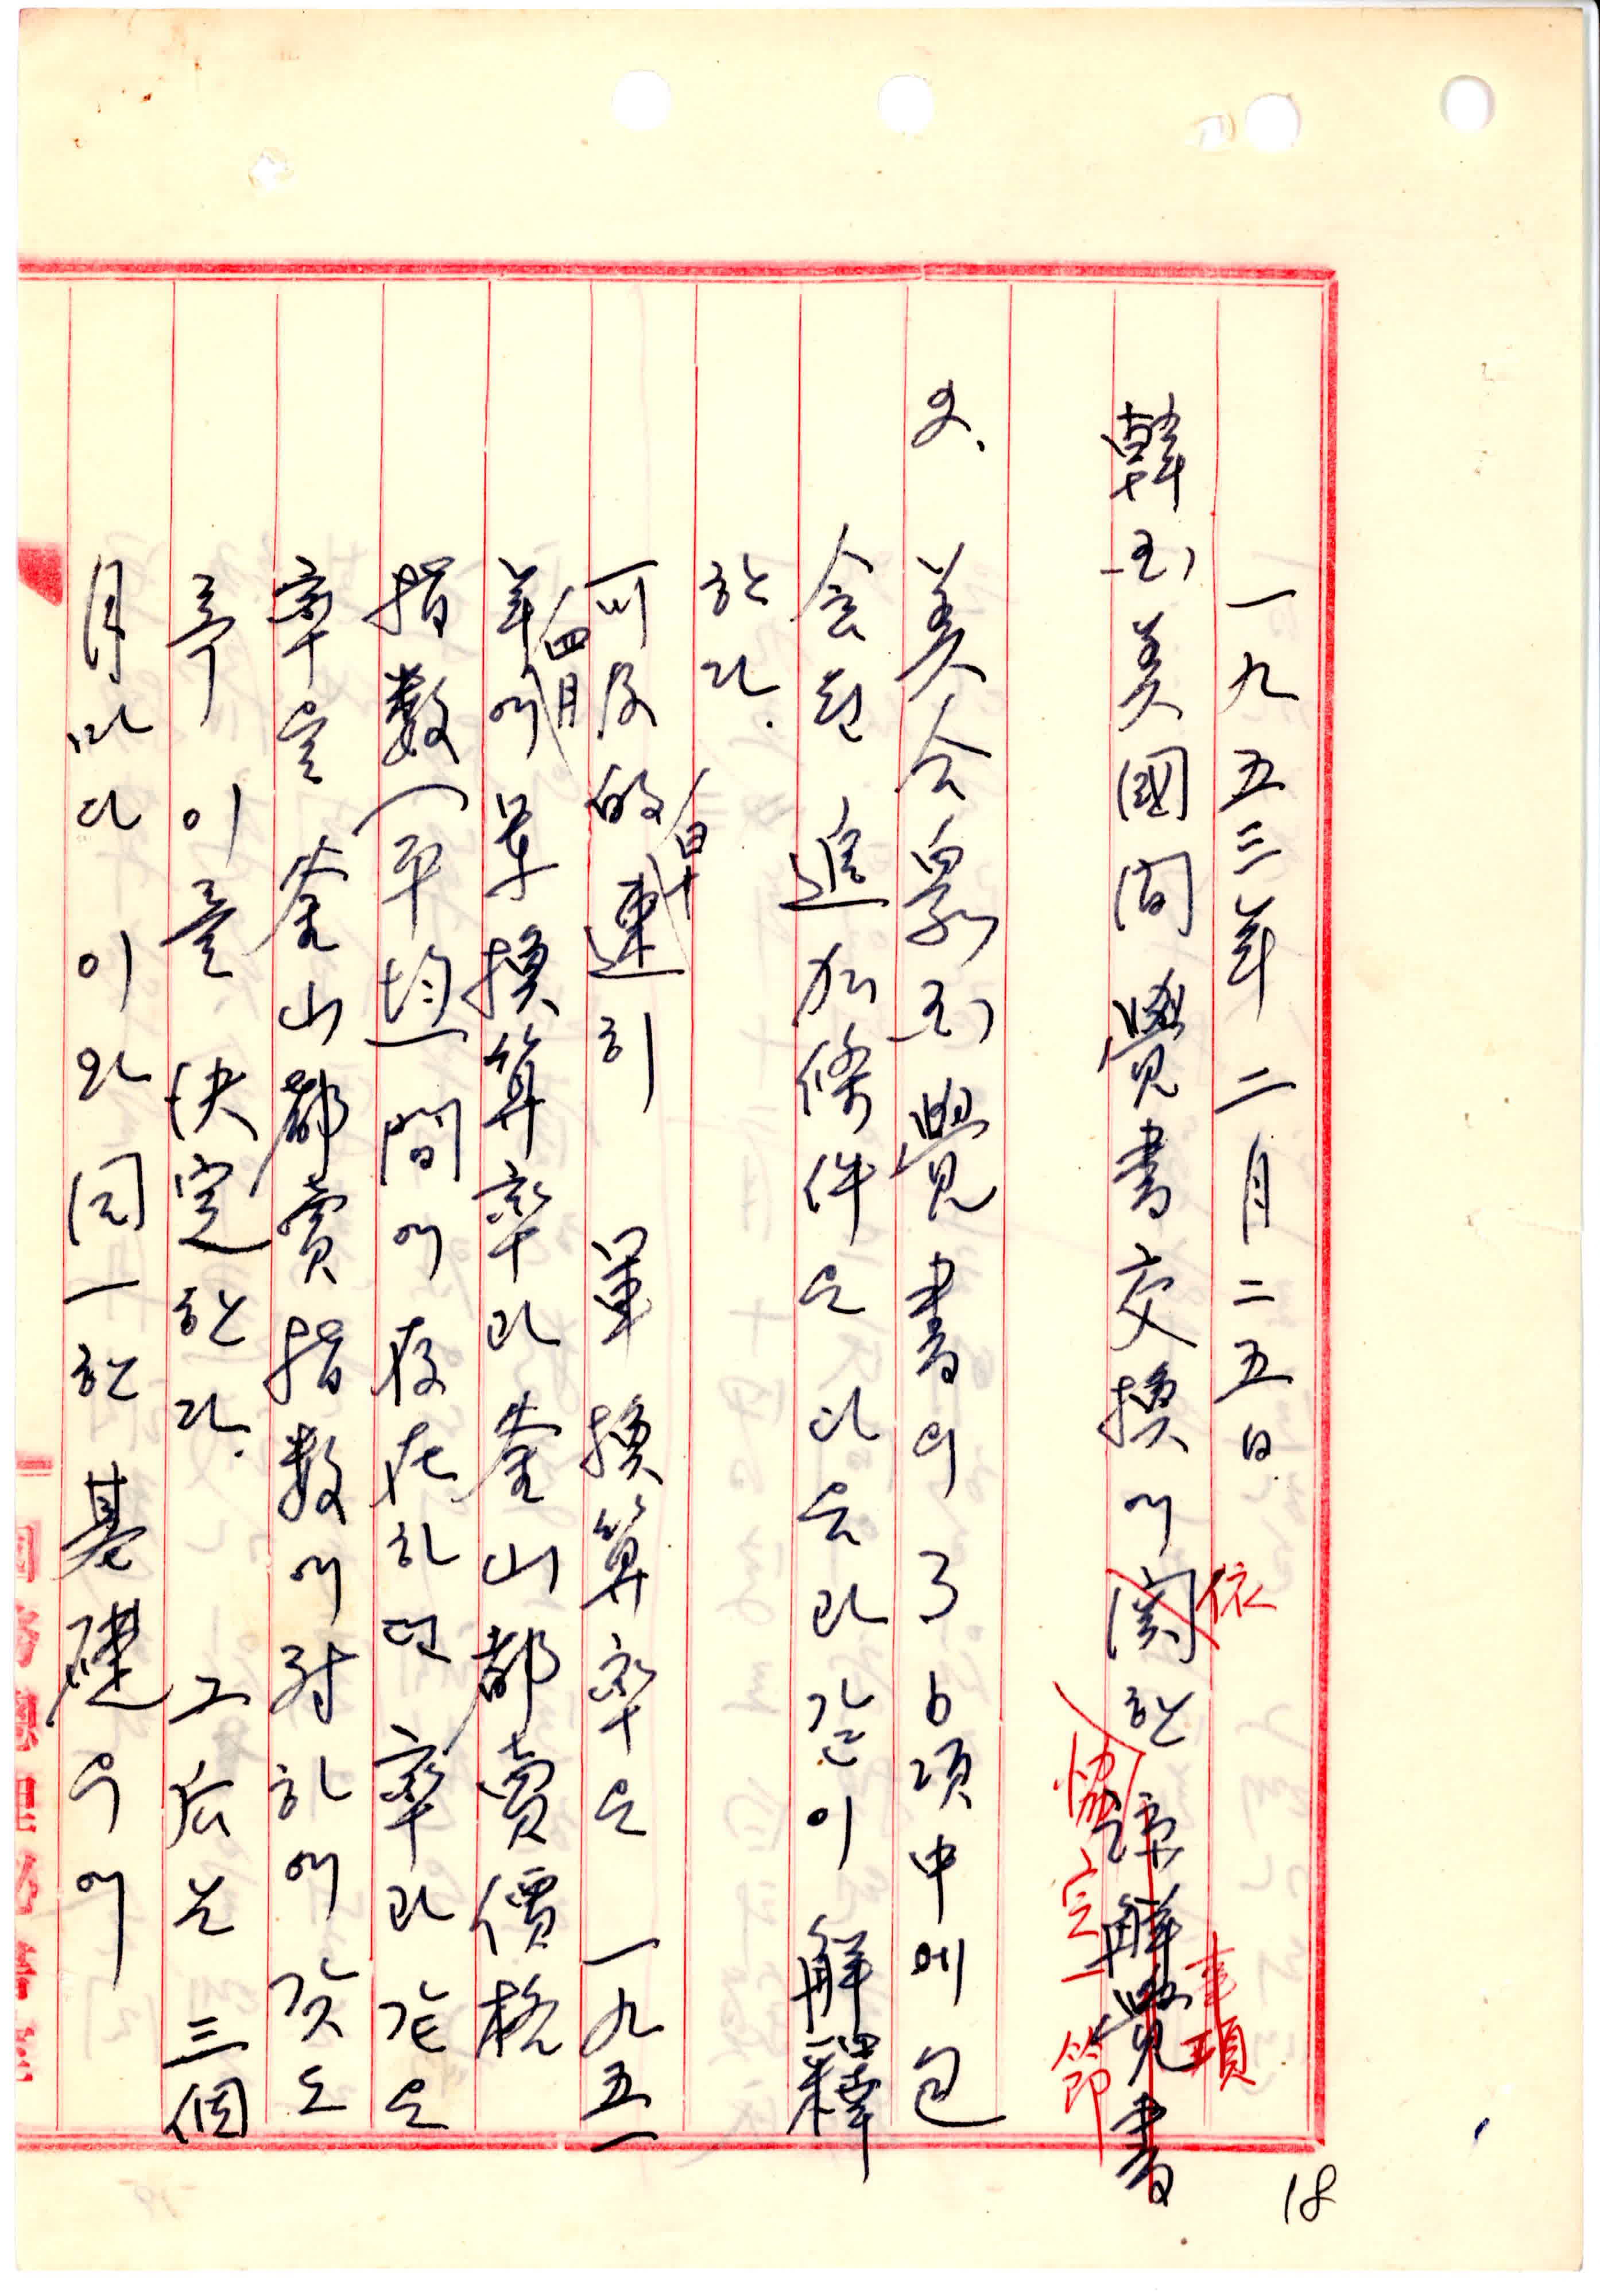 一九五三年 二月 二五日
韓국美國間 覺書交換에 關한 諒解覺書
依
協定
事項
節
2. 美合衆국 覺書의 3 b項中에 包
含된 追加條件은 다음과 같이 解釋
한다.
可及的 速히 單 換算率은 一九五一
早
年에
四月
單換算率과 釜山都賣價格
指數(平均) 間에 存在하던 率과 같은
率을 釜山都賣指數에 對하여 갖도
록 이를 決定한다. 그 后는 三個
月마다 이와 同一한 基礎 우에
18